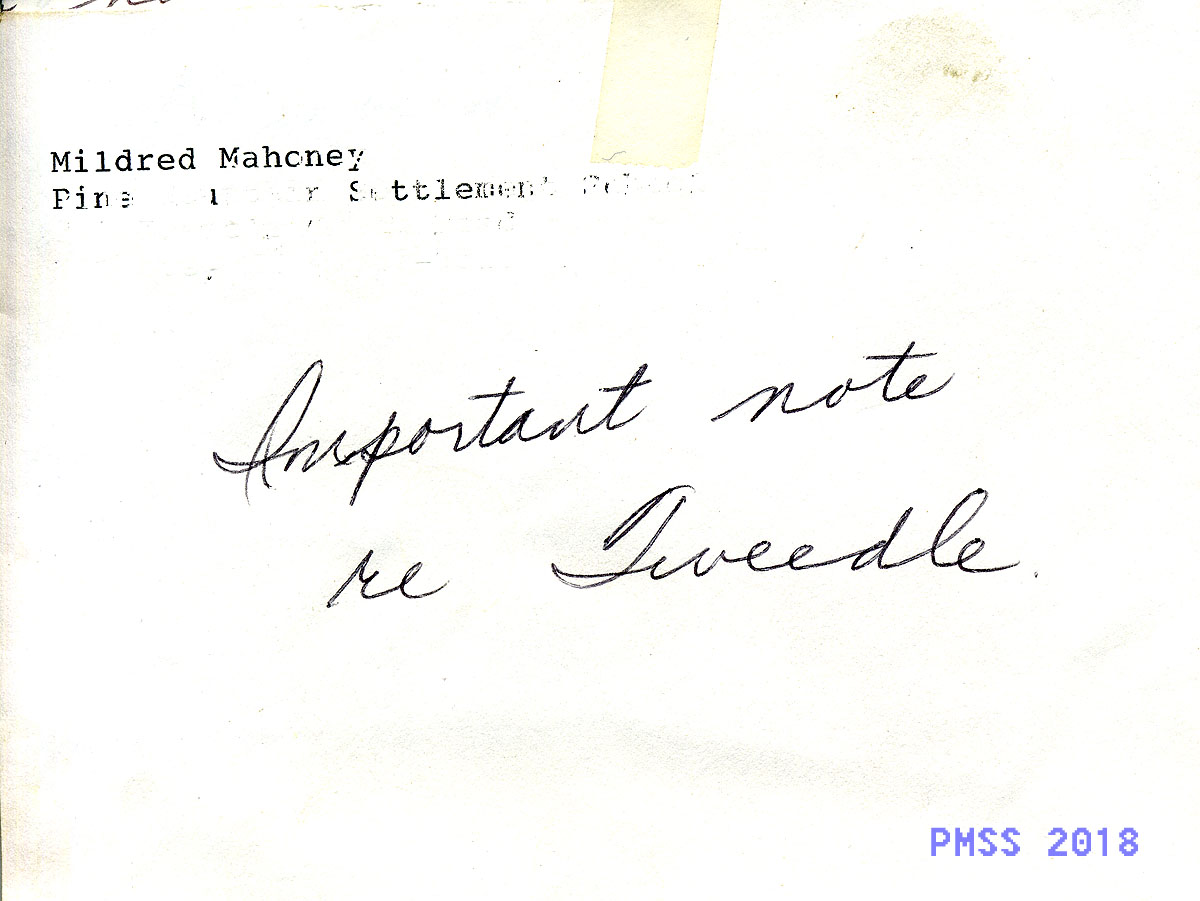 Mildred Mahoney
Pine Settlement School
Important note
re Tweedle.
PMSS 2018